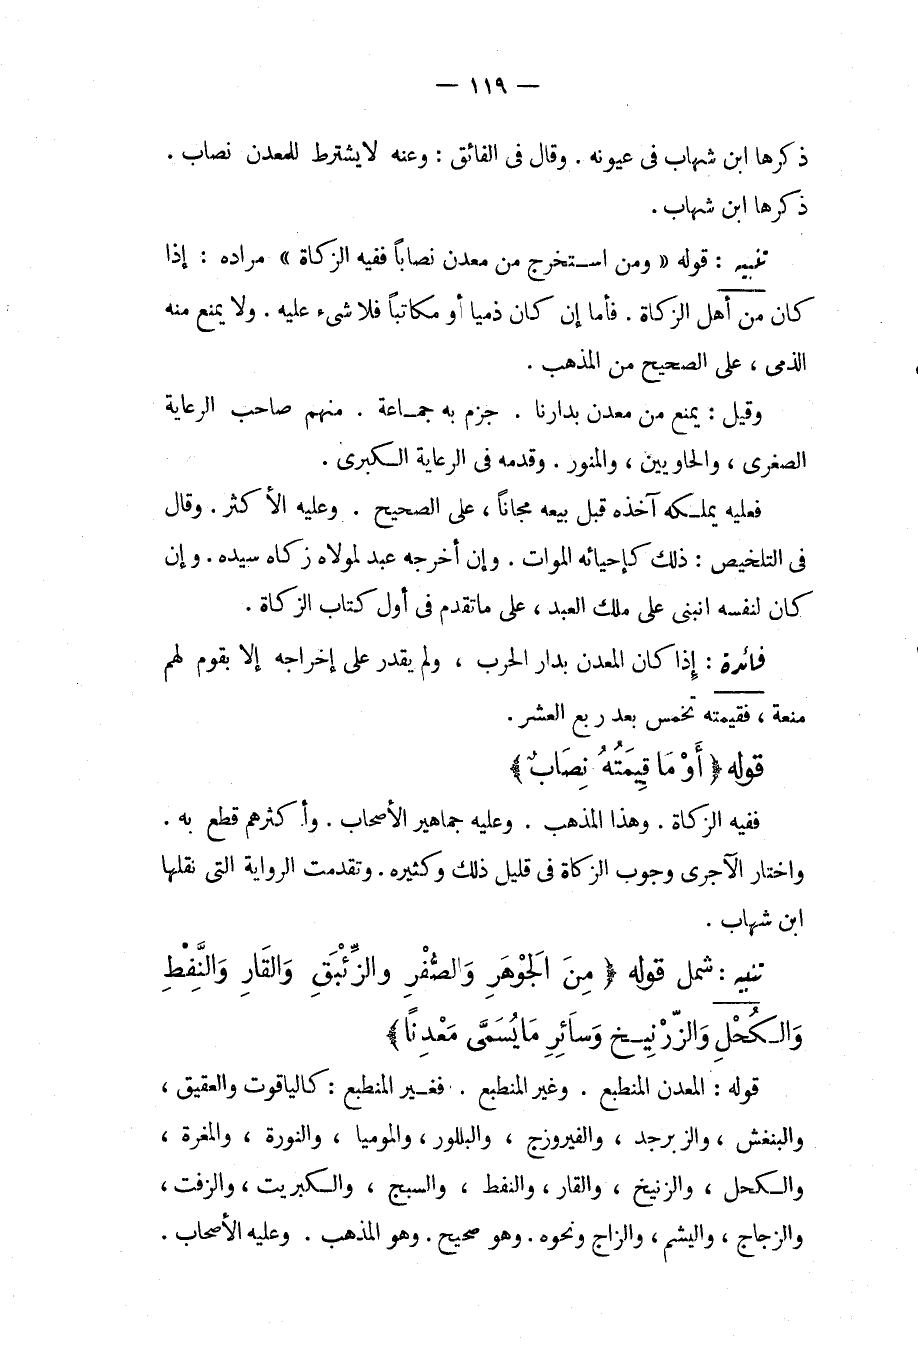 — ١١٩ —
ذكرها ابن شهاب فى عيونه . وقال فى الفائق : وعنه لا يشترط للمعدن نصاب .
ذكرها ابن شهاب .
تنبيه : قوله « ومن استخرج من معدن نصاباً ففيه الزكاة » مراده : إذا
كان من أهل الزكاة . فأما إن كان ذميا أو مكاتباً فلا شىء عليه . ولا يمنع منه
الذمى ، على الصحيح من المذهب .
وقيل : يمنع من معدن بدارنا . جزم به جماعة . منهم صاحب الرعاية
الصغرى ، والحاويين ، والمنور . وقدمه فى الرعاية الكبرى .
فعليه يملكه آخذه قبل بيعه مجاناً ، على الصحيح . وعليه الأكثر . وقال
فى التلخيص : ذلك كإحيائه الموات . وإن أخرجه عبد لمولاه زكاه سيده . وإن
كان لنفسه انبنى على ملك العبد ، على ماتقدم فى أول كتاب الزكاة .
فائدة : إذا كان المعدن بدار الحرب ، ولم يقدر على إخراجه إلا بقوم لهم
منعة ، فقيمته تخمس بعد ربع العشر .
قوله ﴿ أَوْ مَا قِيمَتُهُ نِصَابٌ ﴾
ففيه الزكاة . وهذا المذهب . وعليه جماهير الأصحاب . وأكثرهم قطع به .
واختار الآجرى وجوب الزكاة فى قليل ذلك وكثيره . وتقدمت الرواية التى نقلها
ابن شهاب .
تنبيه : شمل قوله ﴿ مِنَ الْجَوْهَرِ وَالصُّفْرِ والزِّئْبَقِ وَالقَارِ وَالنَّفْطِ
وَالكُحْلِ وَالزِّرْنِيخِ وَسَائِرِ مَايُسَمَّى مَعْدِنًا ﴾
قوله : المعدن المنطبع . وغير المنطبع . فغير المنطبع : كالياقوت والعقيق ،
والبنفش ، والزبرجد ، والفيروزج ، والبللور ، والموميا ، والنورة ، والمغرة ،
والكحل ، والزنيخ ، والقار ، والنفط ، والسبج ، والكبريت ، والزفت ،
والزجاج ، واليشم ، والزاج ونحوه . وهو صحيح . وهو المذهب . وعليه الأصحاب .